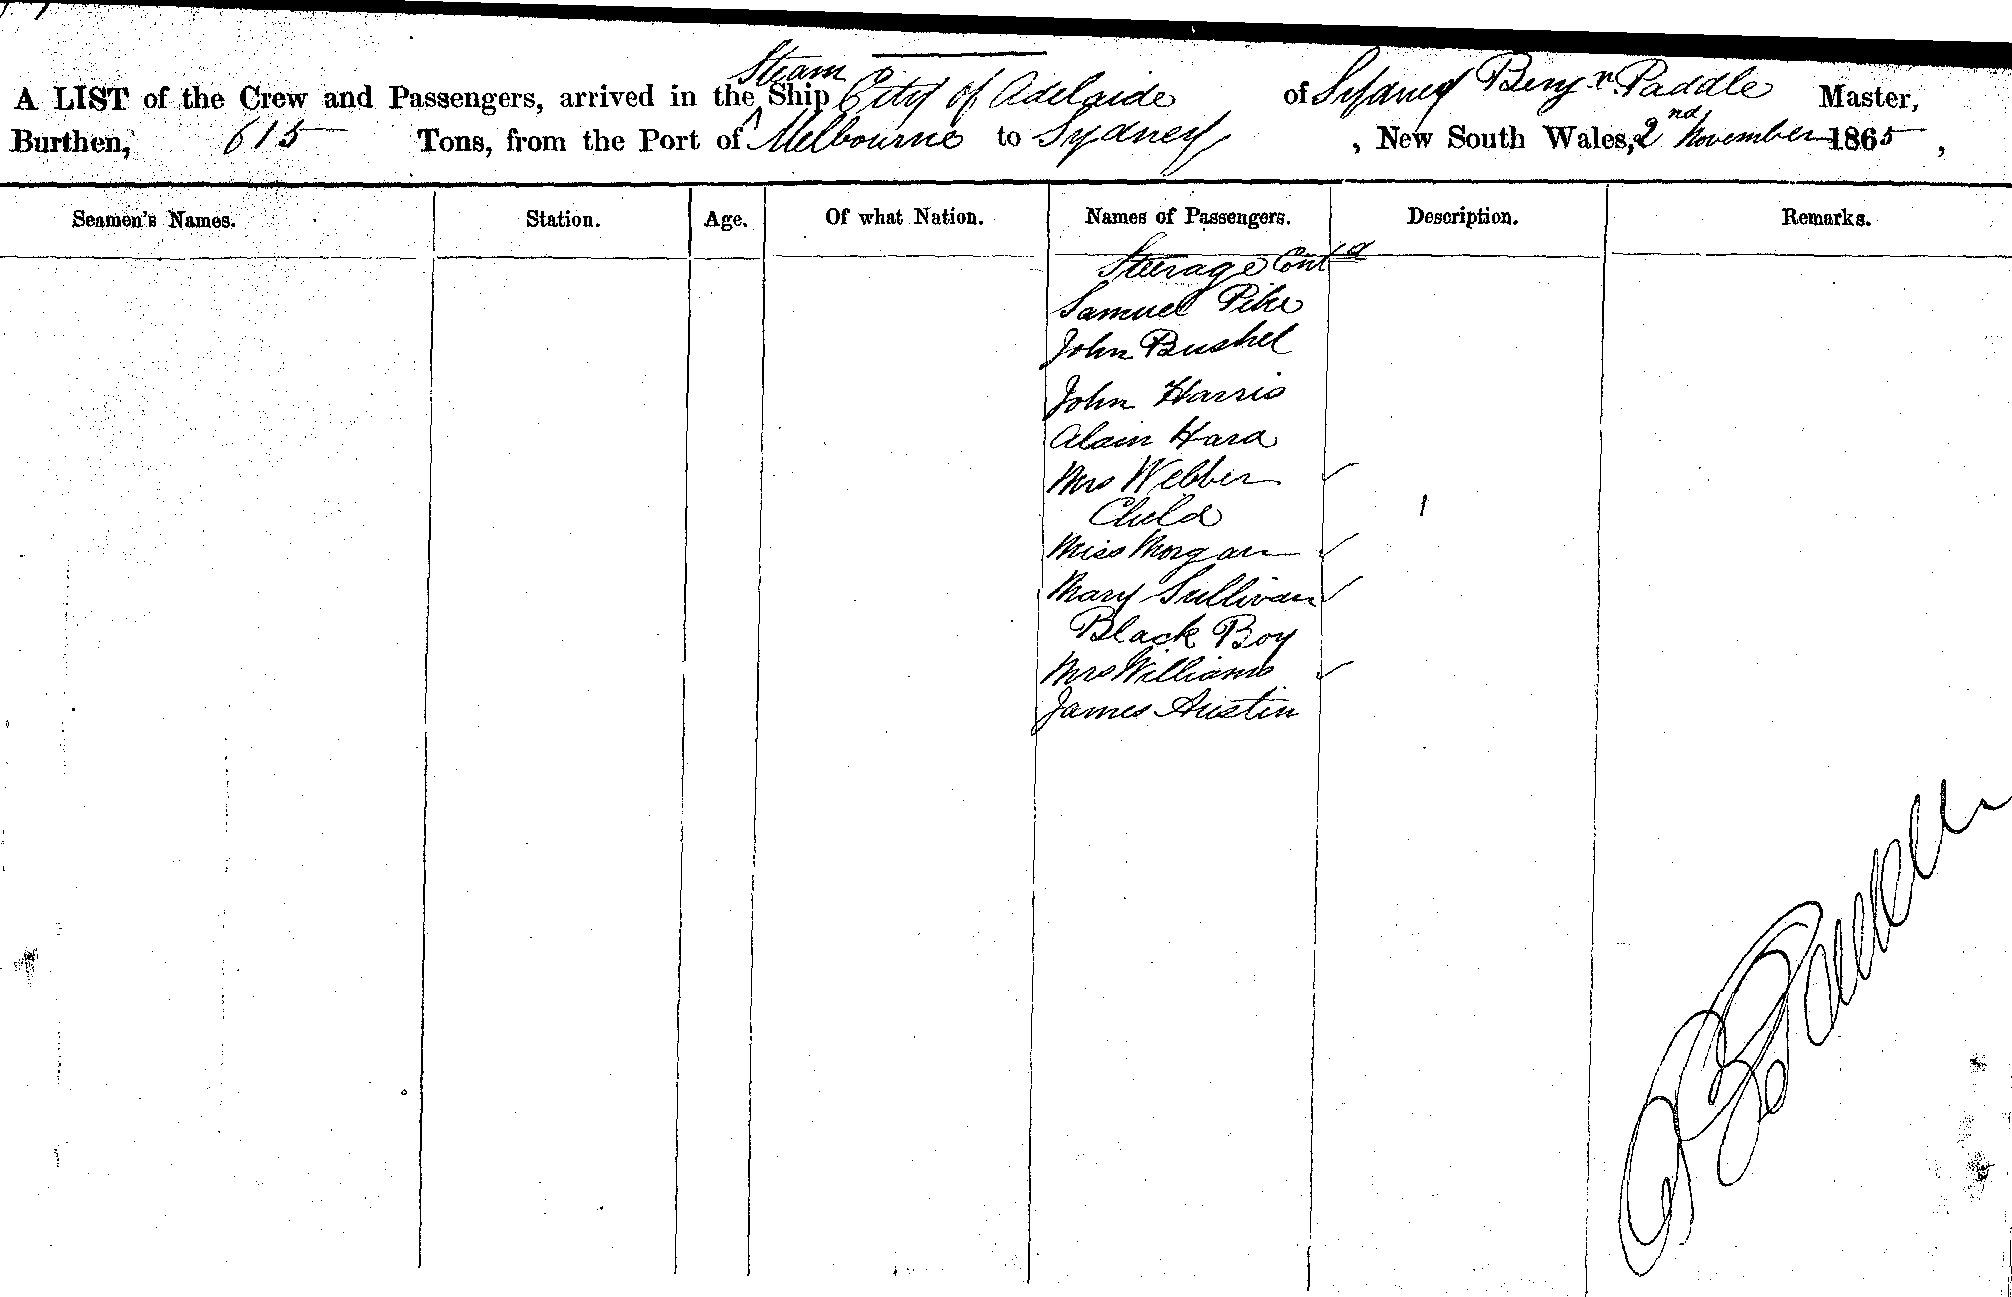 A LIST of the Crew and Passengers, arrived in the Steam Ship City of Adelaide of Sydney Benjn. Paddle Master,
Burthen, 615 Tons, from the Port of Melbourne to Sydney, New South Wales, 2nd November 1865,
Seamen's Names. Station. Age. Of what Nation. Names of Passengers. Description. Remarks.
Steerage Contd
Samuel Pike
John Bushel
John Harris
Alain Hara
Mrs Webber ✓
Child 1
Miss Morgan ✓
Mary Sullivan ✓
Black Boy
Mrs Williams ✓
James Austin